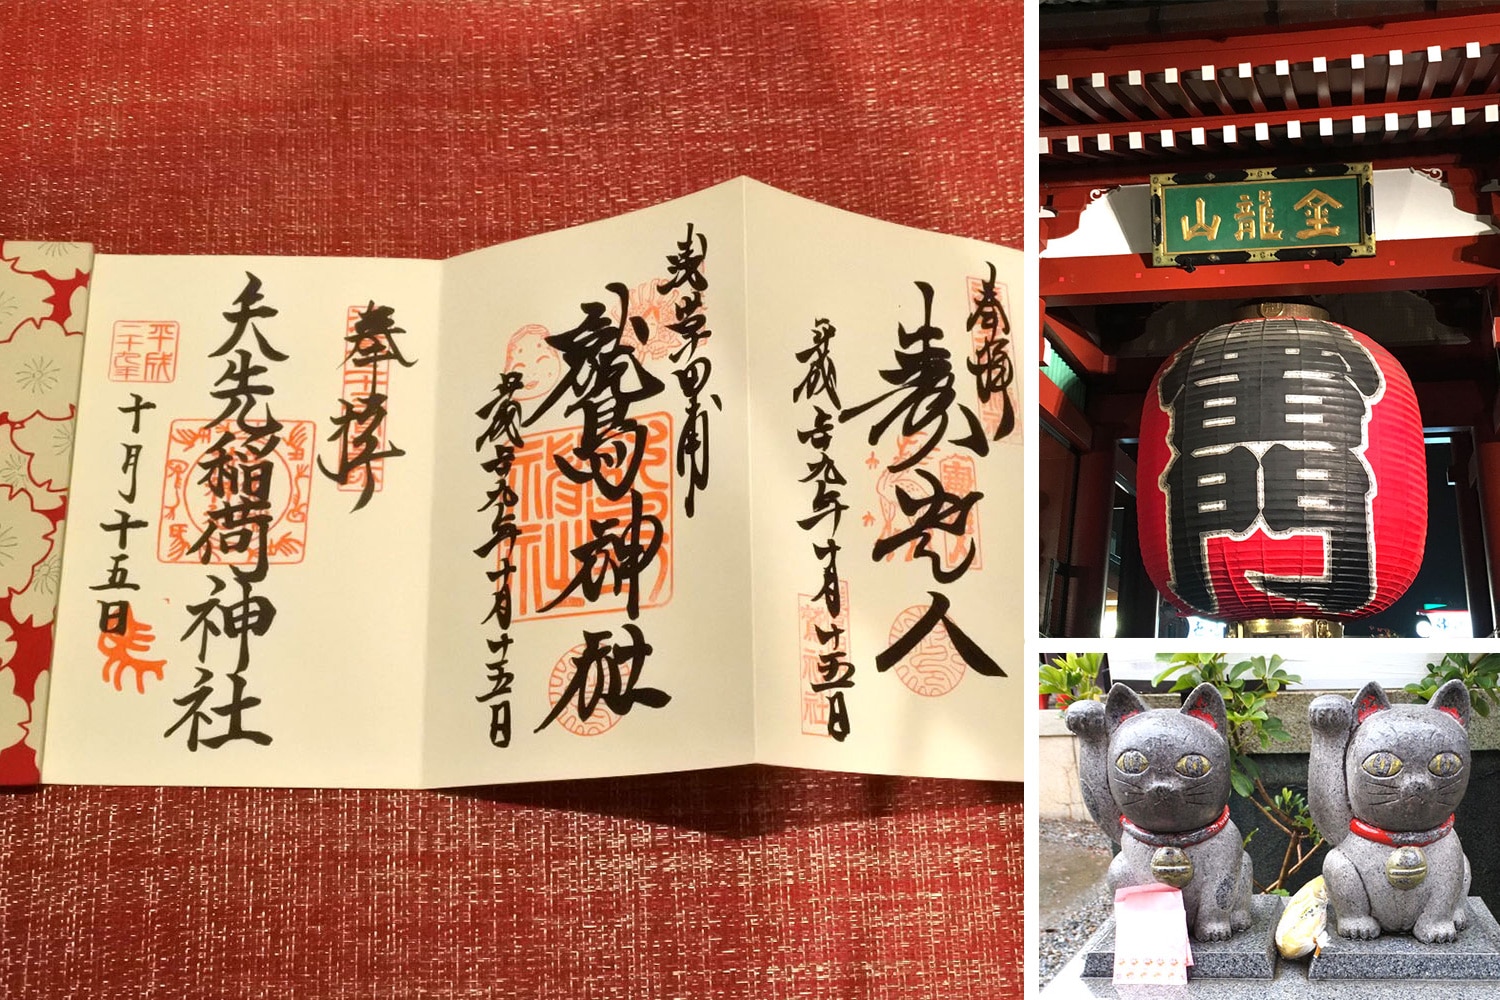 奉拝
寿老人
平成廿九年十月十五日
浅草田甫
鷲神社
平成廿九年十月十五日
奉拝
矢先稲荷神社
平成
二十九年
十月十五日
金龍山
雷門